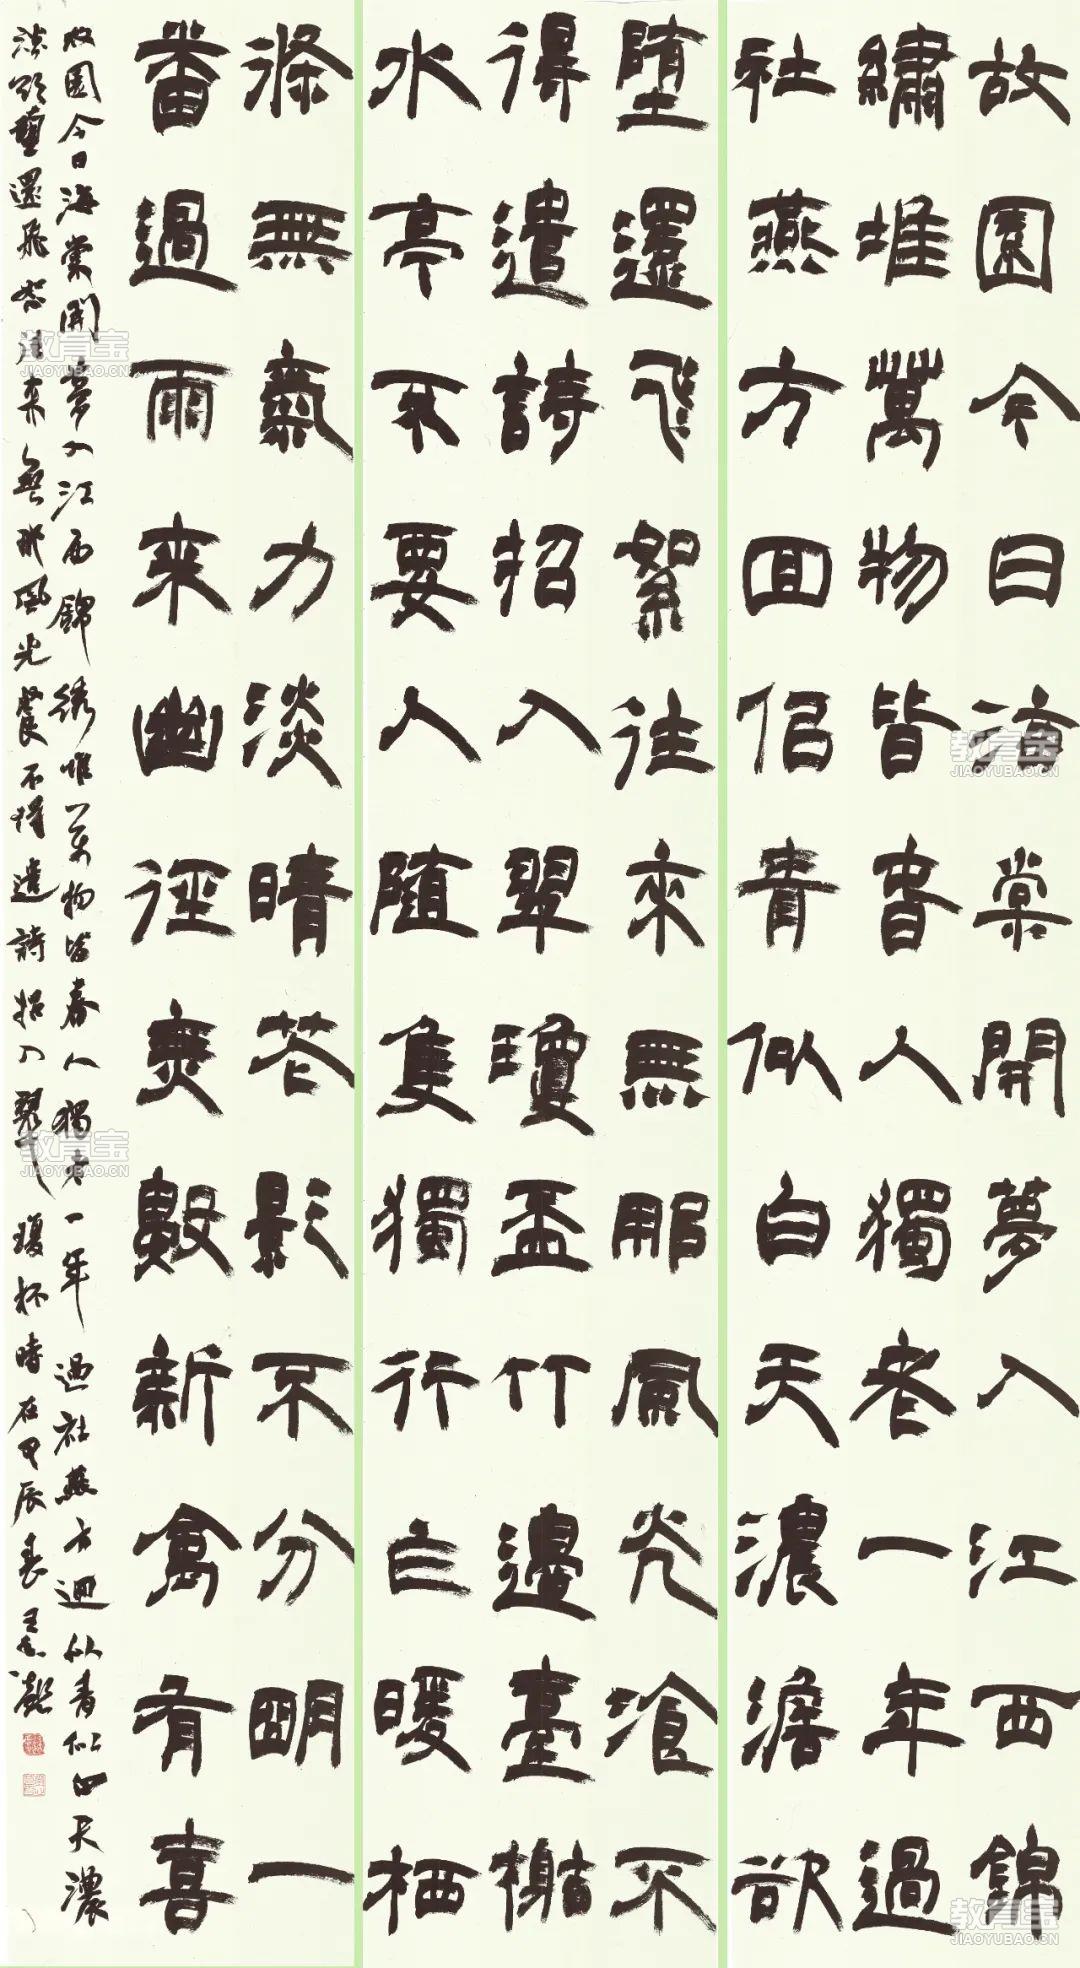 故園今日海棠開夢入江西錦
繡堆萬物皆春人獨老一年過
社燕方回侣青似白天濃澹欲
堕還飛絮往來無那風光飡不
得遣詩招入翠瓊盃竹邊臺榭
水亭不要人隨隻獨行乍暖柳
條無氣力淡晴花影不分明一
番過雨来幽徑無數新禽有喜
故園今日海棠開夢入江西錦绣堆萬物皆春人獨老一年過社燕方迴似青似白天濃
淡欲墮還飛絮往来無那風光餐不得遣詩招入翠瓊杯時在甲辰春
教育宝
JIAOYUBAO.CN
教育宝
JIAOYUBAO.CN
教育宝
JIAOYUBAO.CN
教育宝
JIAOYUBAO.CN